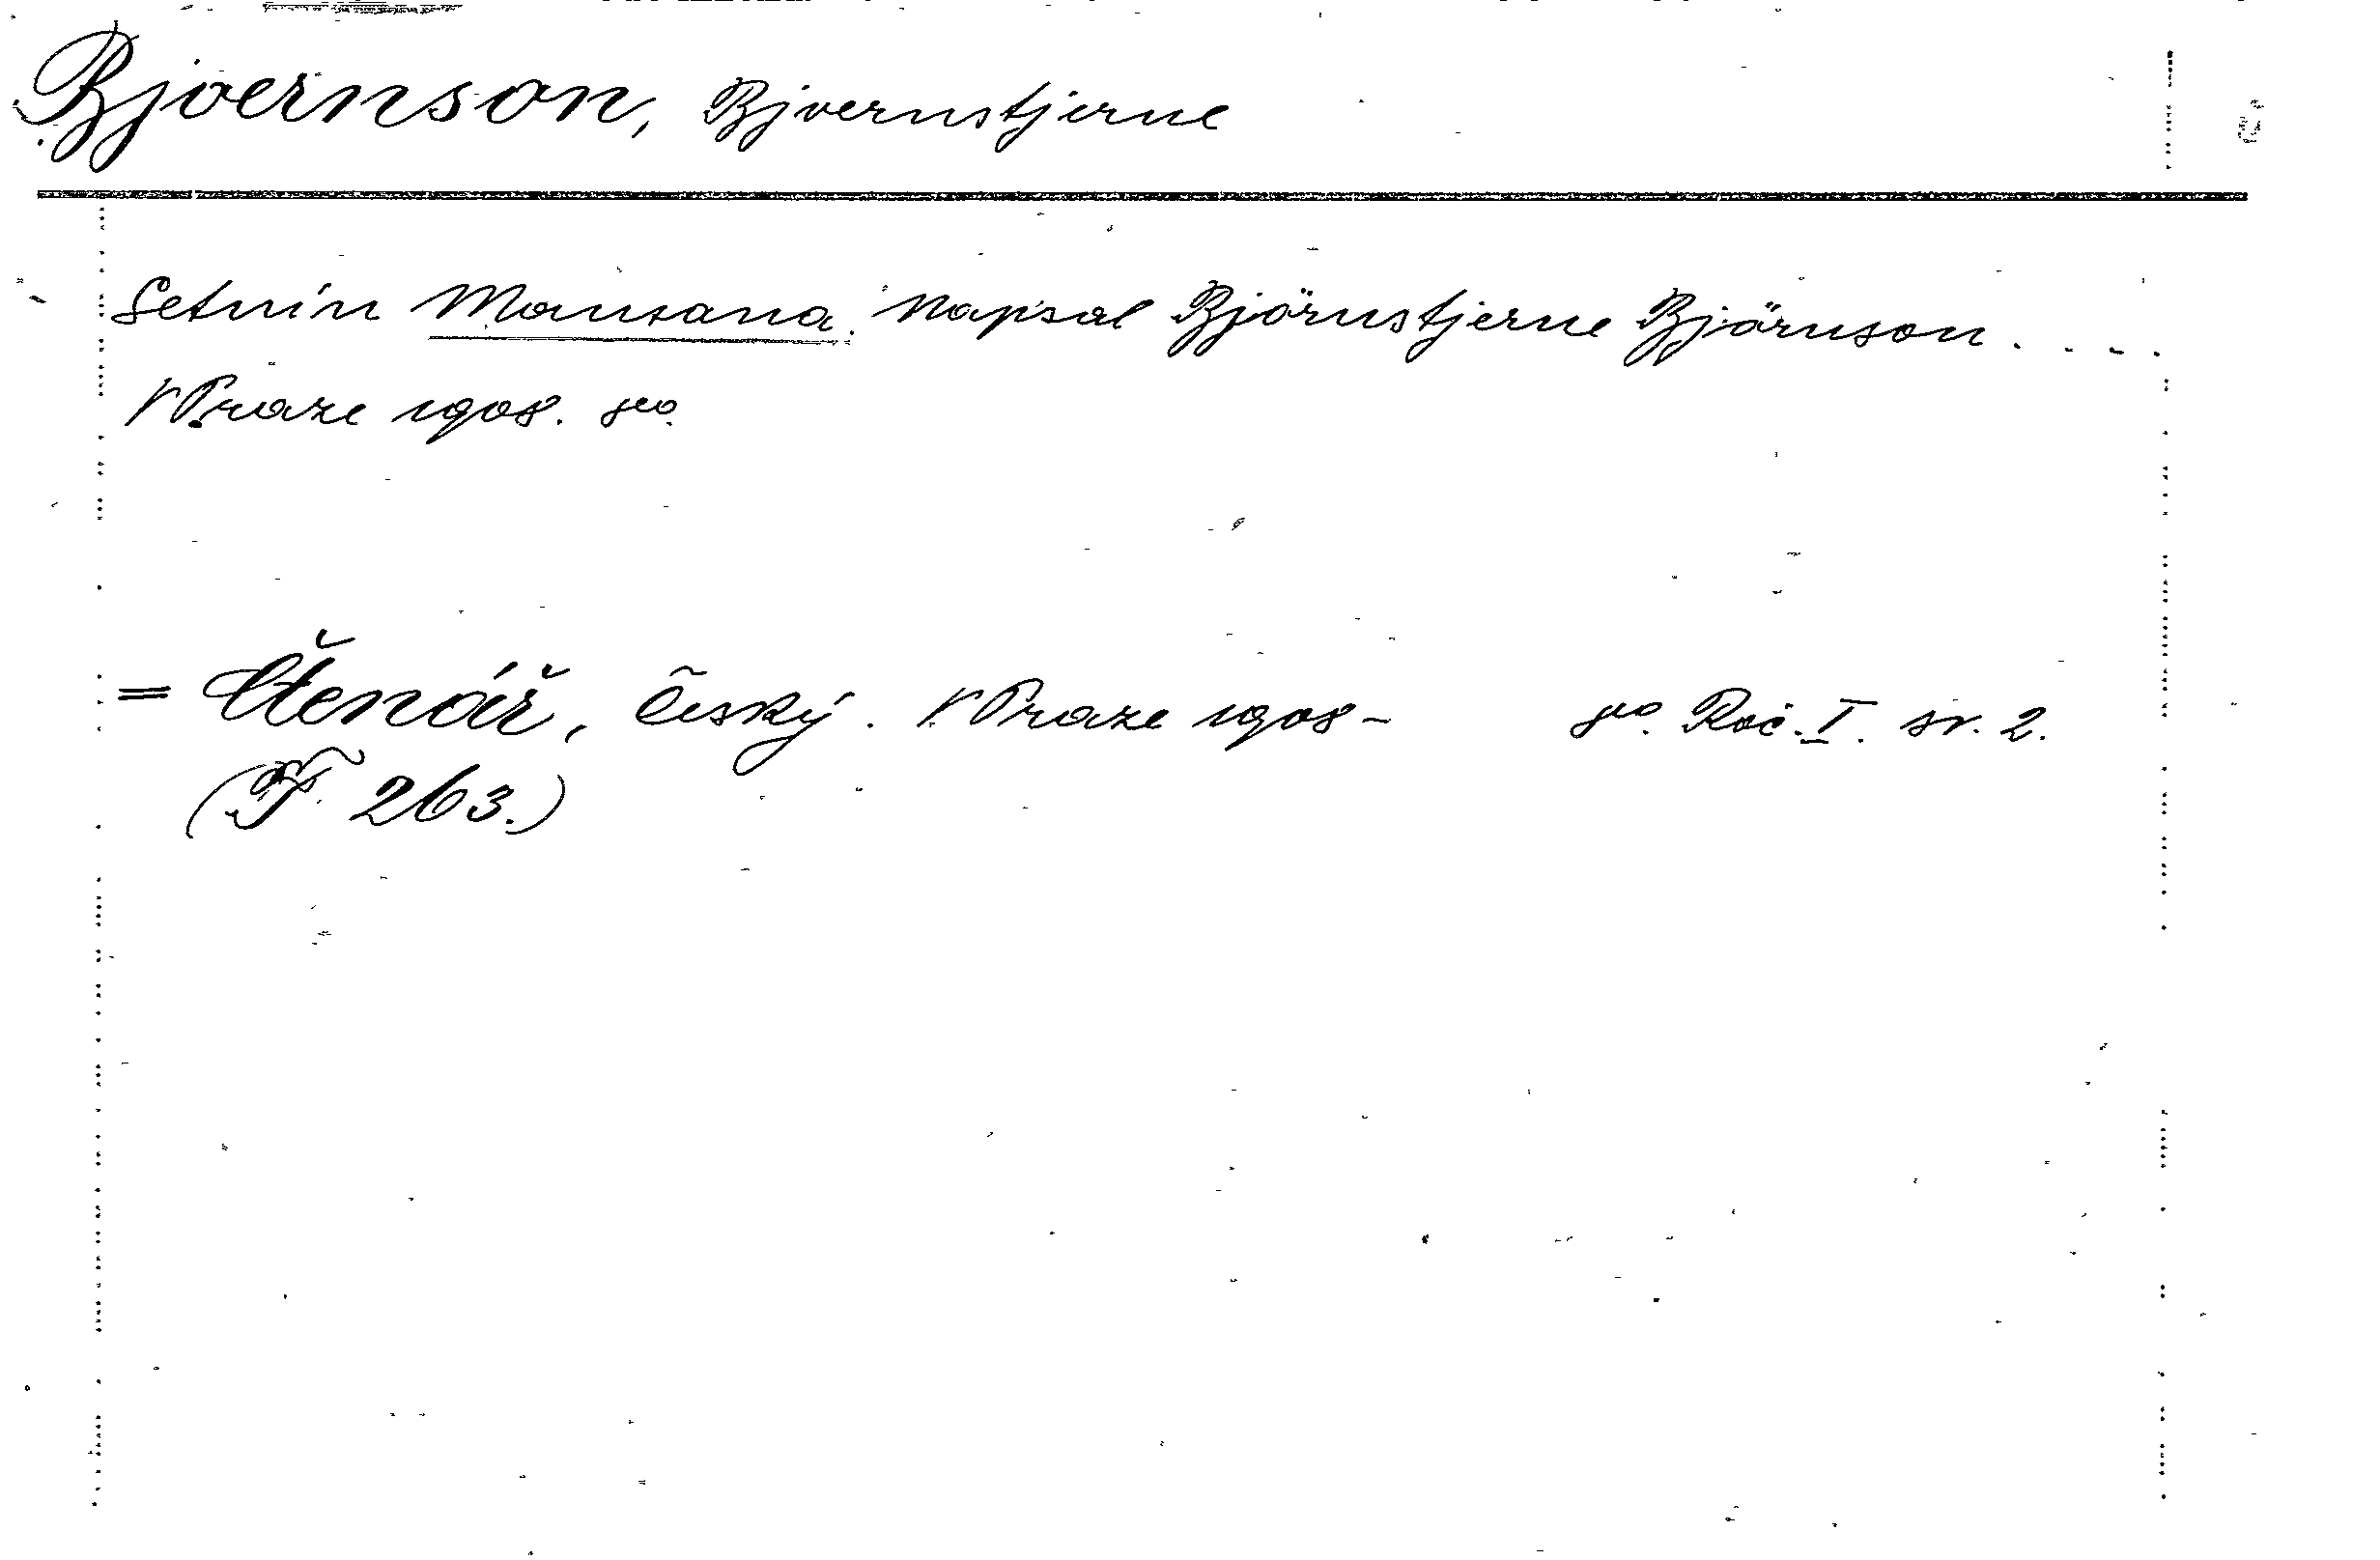 Bjoernson, Bjoernstjerne
Setnín Mansana. Napsal Björnstjerne Björnson....
V Praze 1908. 8vo.
= Čtenář, Český. V Praze 1908- 8vo. Roč. I. sv. 2.
(F 263.)